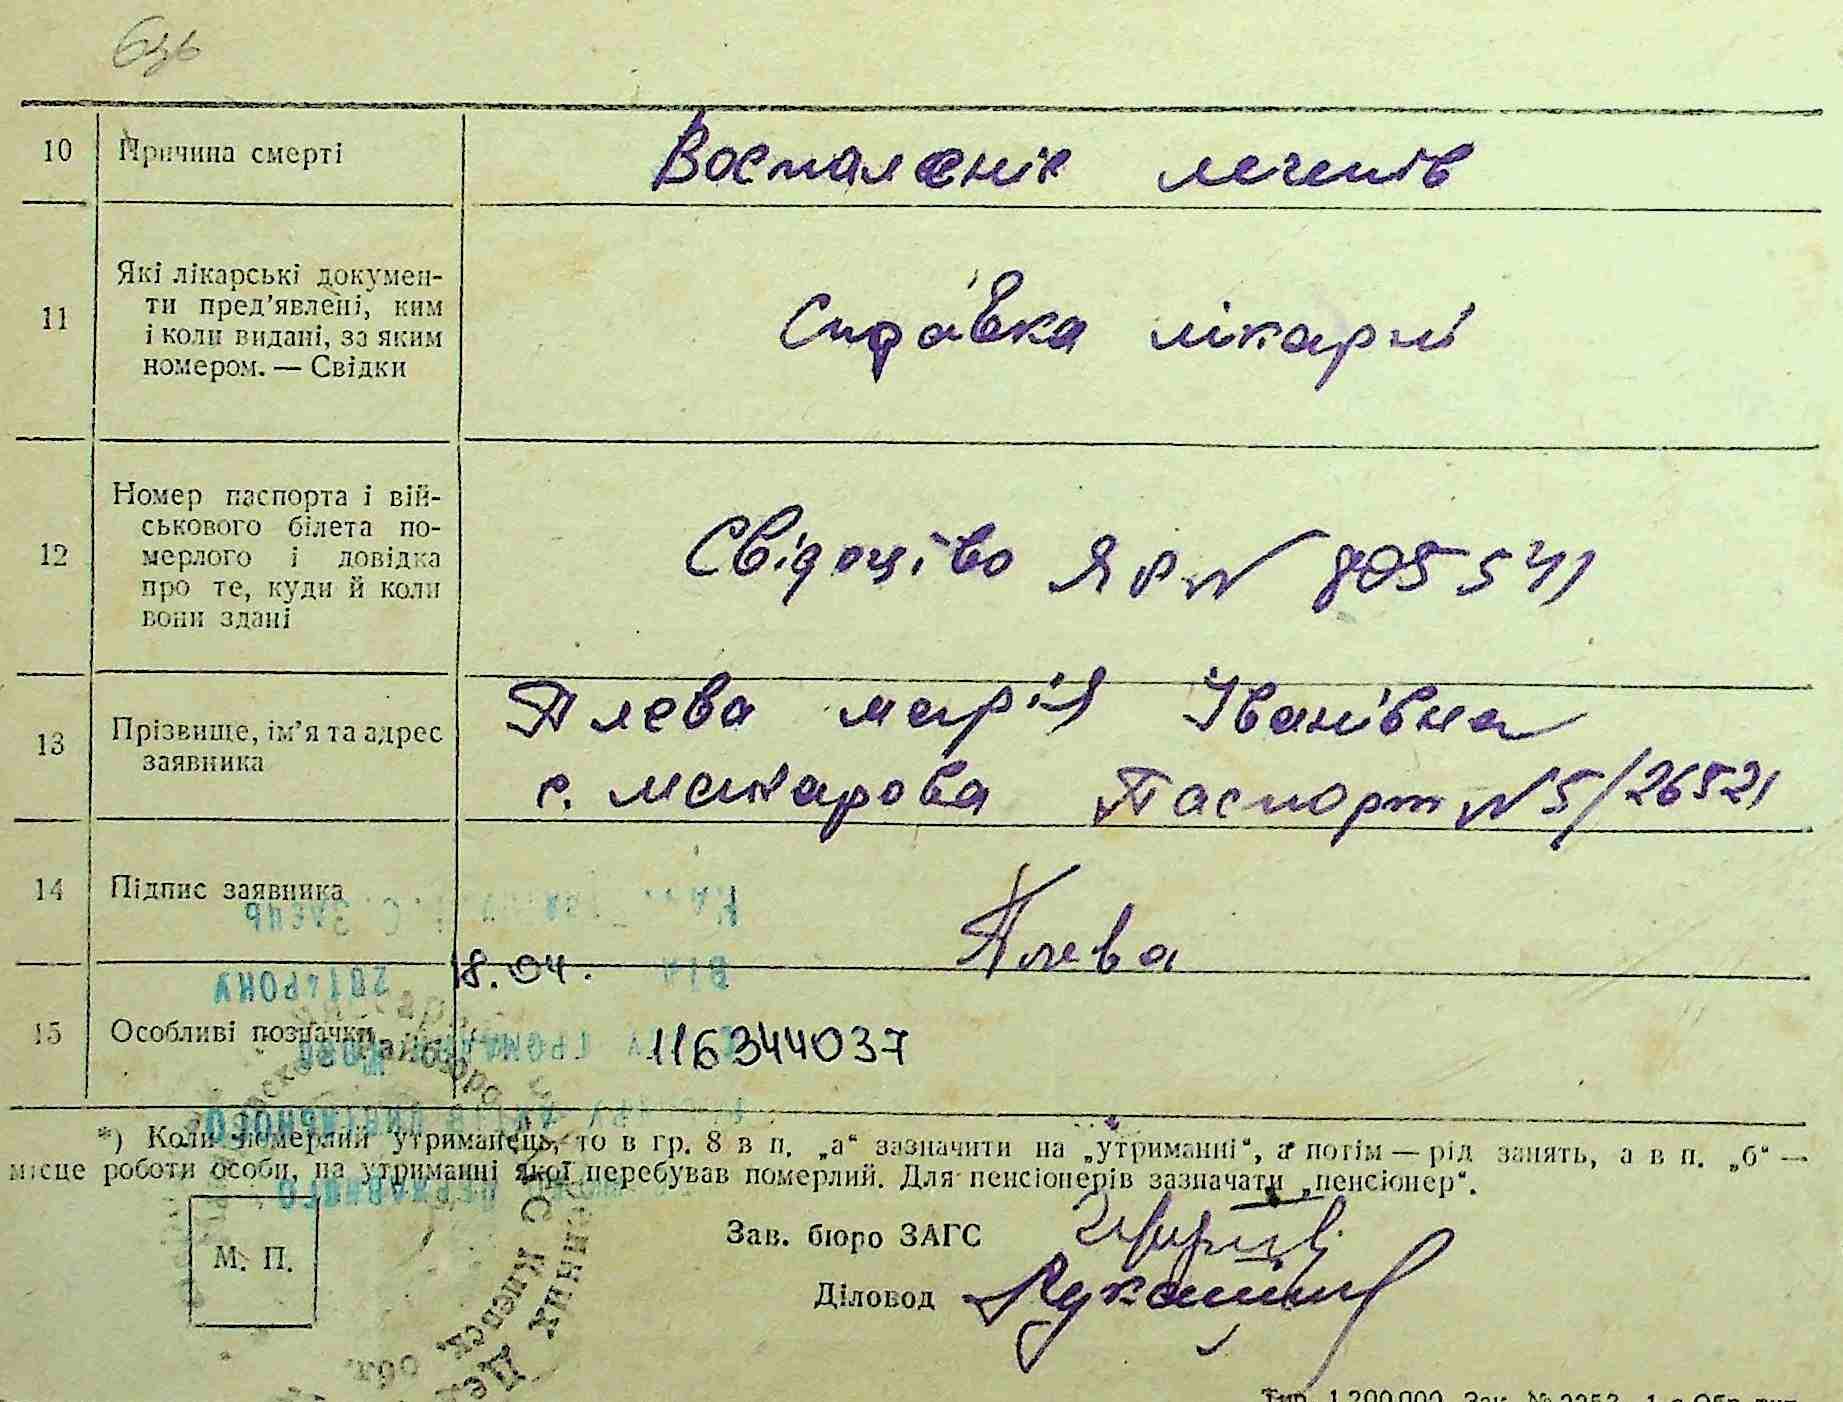 10 Причина смерті Воспаленіє легенів
11 Які лікарські докумен-
ти пред'явлені, ким
і коли видані, за яким
номером. — Свідки
Справка лікарні
12 Номер паспорта і вій-
ськового білета по-
мерлого і довідка
про те, куди й коли
вони здані
Свідоцтво ЯР N 805541
13 Прізвище, ім'я та адрес
заявника
Плева марія Іванівна
с. Макарова Паспорт N 5/26521
14 Підпис заявника Плева
18.04. 2014РОКУ
15 Особливі позначки 116344037
*) Коли померлий утриманець, то в гр. 8 в п. „а“ зазначити на „утриманні“, а потім — рід занять, а в п. „б“ —
місце роботи особи, на утриманні якої перебував померлий. Для пенсіонерів зазначати „пенсіонер“.
М. П.
Зав. бюро ЗАГС
Діловод
Киевск. обл.
Тир. 1.200.000 Зак. № 2253